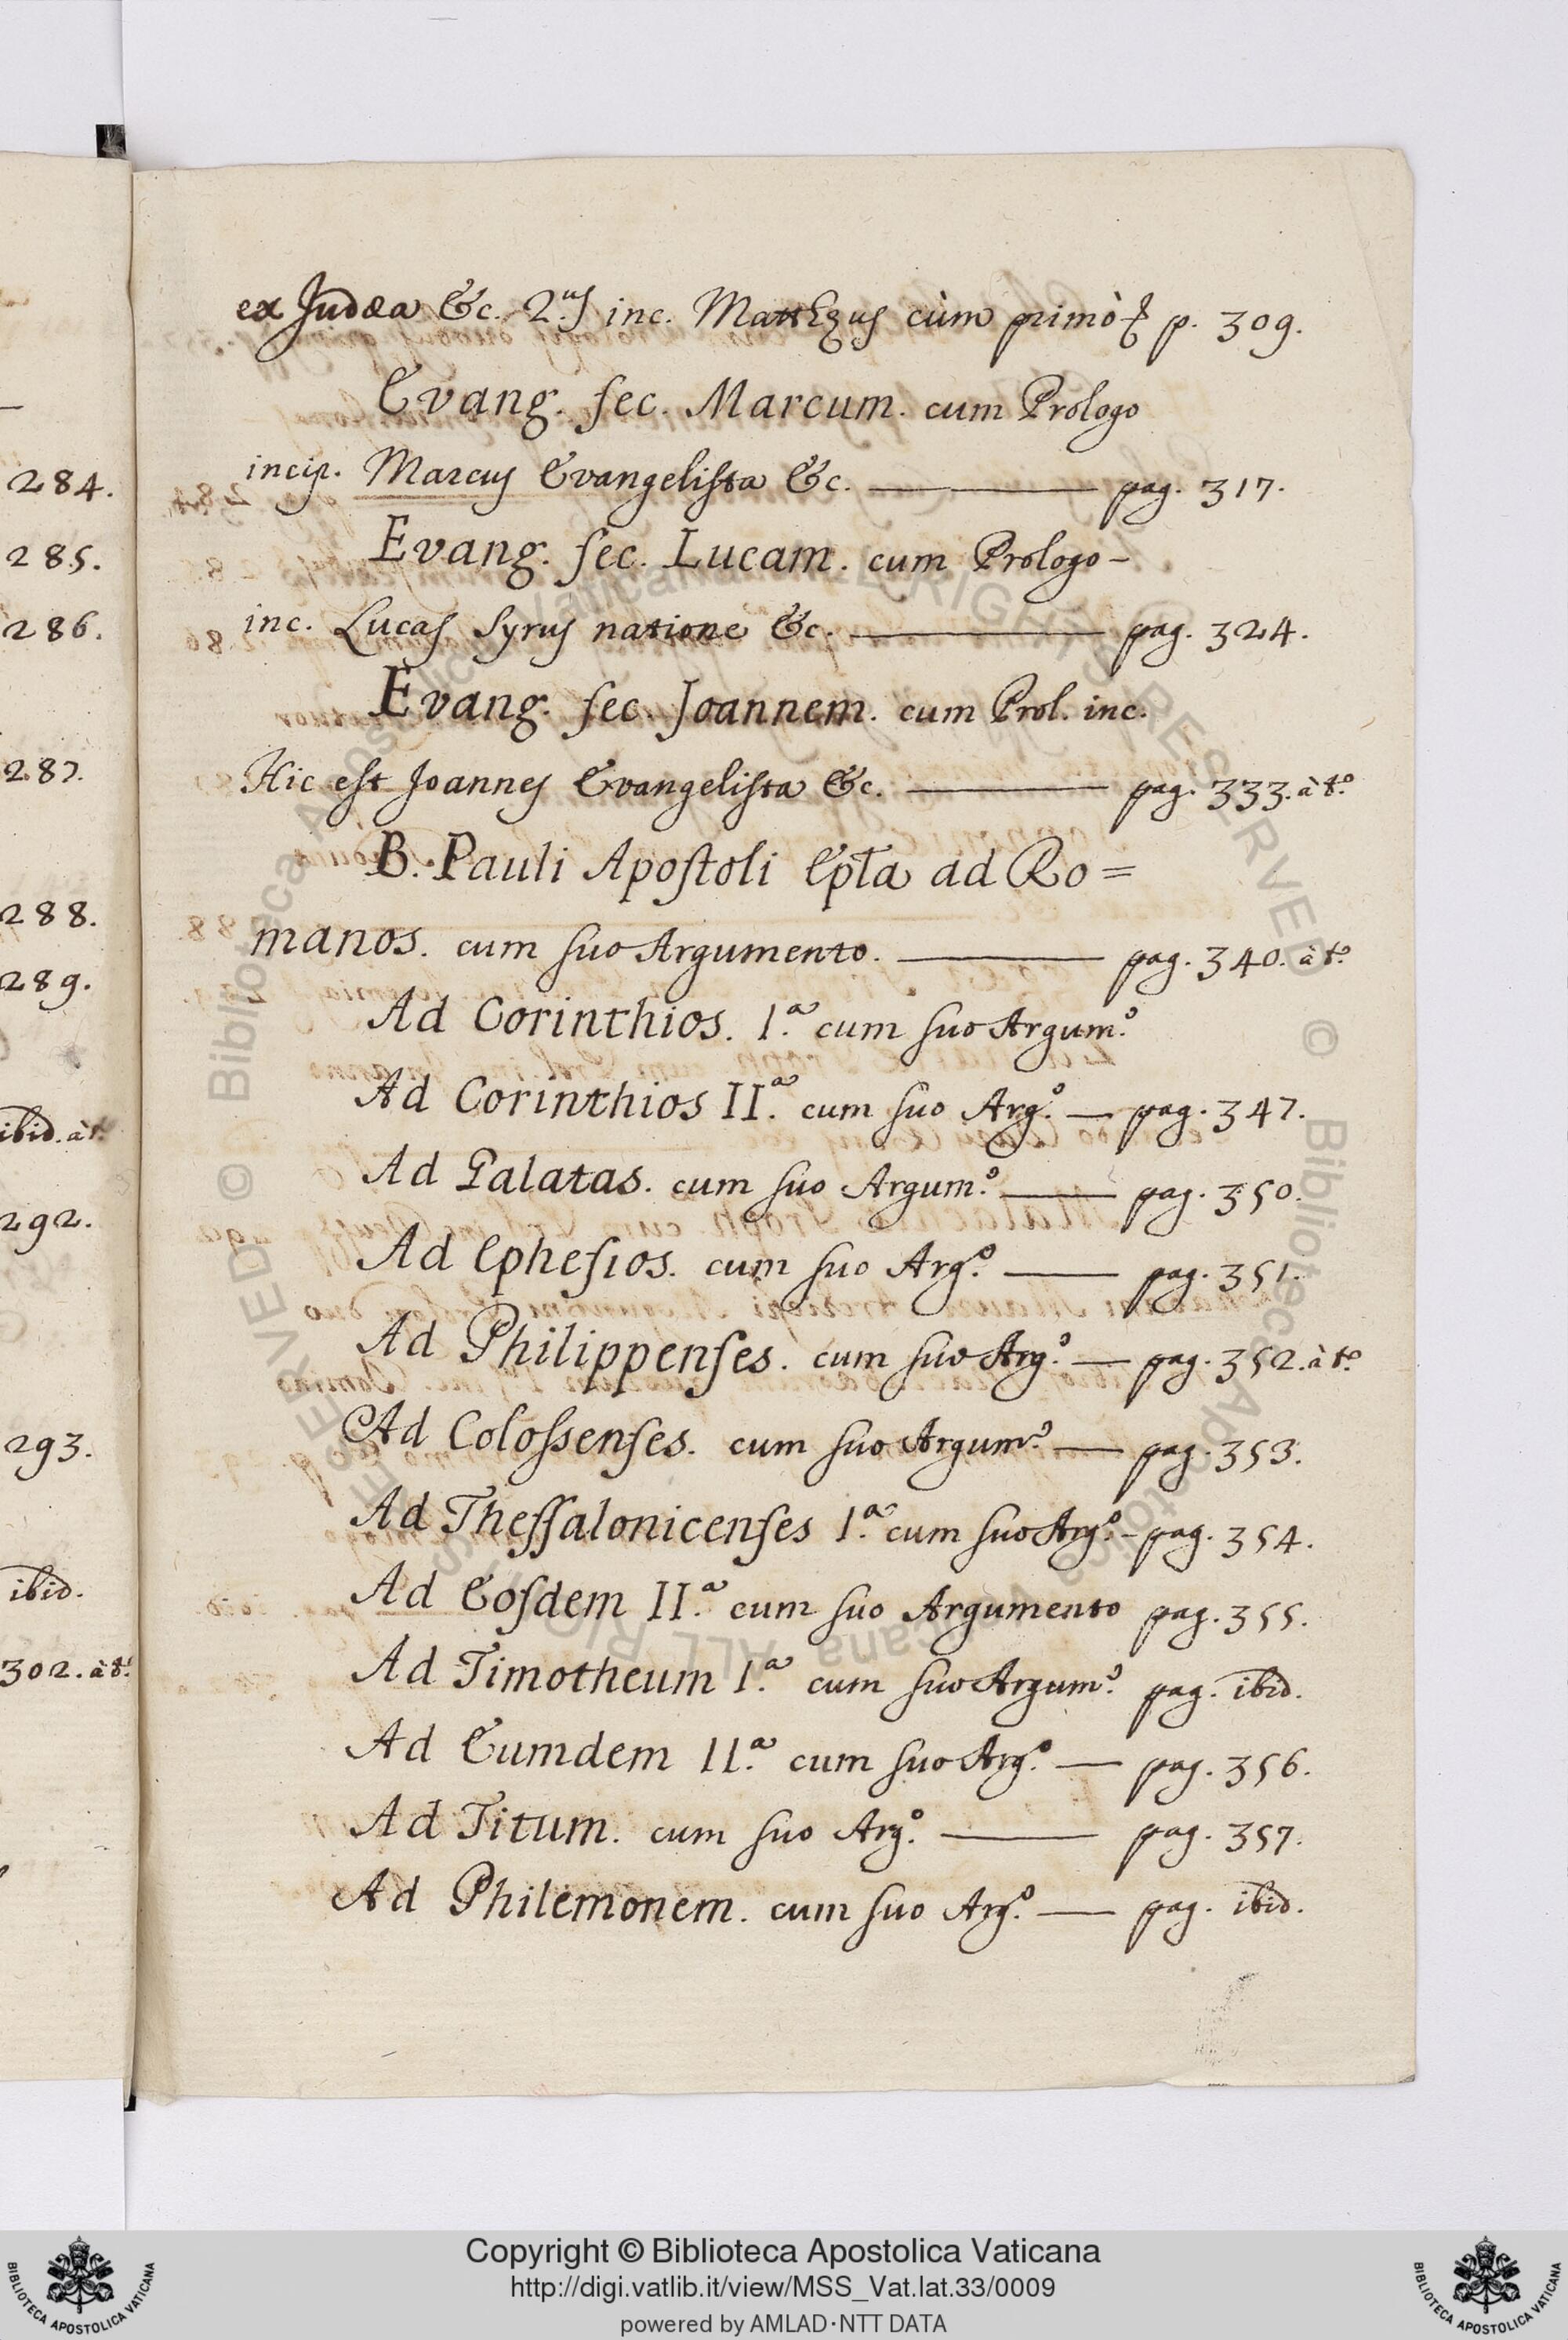 284.
285.
286.
287.
288.
289.
ibid. à t.º
292.
293.
ibid.
302. à t.º
ex Judæa &c. 2.us inc. Matthæus cùm primò & p. 309.
Evang. sec. Marcum. cum Prologo
incip. Marcus Evangelista &c. — pag. 317.
Evang. sec. Lucam. cum Prologo –
inc. Lucas Syrus natione &c. — pag. 324.
Evang. sec. Joannem. cum Prol. inc.
Hic est Joannes Evangelista &c. — pag. 333. à t.º
B. Pauli Apostoli Epła ad Ro=
manos. cum suo Argumento. — pag. 340. à t.º
Ad Corinthios. I.ª cum suo Argum.º
Ad Corinthios II.ª cum suo Arg.º — pag. 347.
Ad Galatas. cum suo Argum.º — pag. 350.
Ad Ephesios. cum suo Arg.º — pag. 351.
Ad Philippenses. cum suo Arg.º — pag. 352. à t.º
Ad Colossenses. cum suo Argum.º — pag. 353.
Ad Thessalonicenses I.ª cum suo Arg.º – pag. 354.
Ad Eosdem II.ª cum suo Argumento pag. 355.
Ad Timotheum I.ª cum suo Argum.º pag. ibid.
Ad Eumdem II.ª cum suo Arg.º — pag. 356.
Ad Titum. cum suo Arg.º — pag. 357.
Ad Philemonem. cum suo Arg.º — pag. ibid.
Copyright © Biblioteca Apostolica Vaticana
http://digi.vatlib.it/view/MSS_Vat.lat.33/0009
powered by AMLAD·NTT DATA
BIBLIOTECA APOSTOLICA VATICANA
BIBLIOTECA APOSTOLICA VATICANA